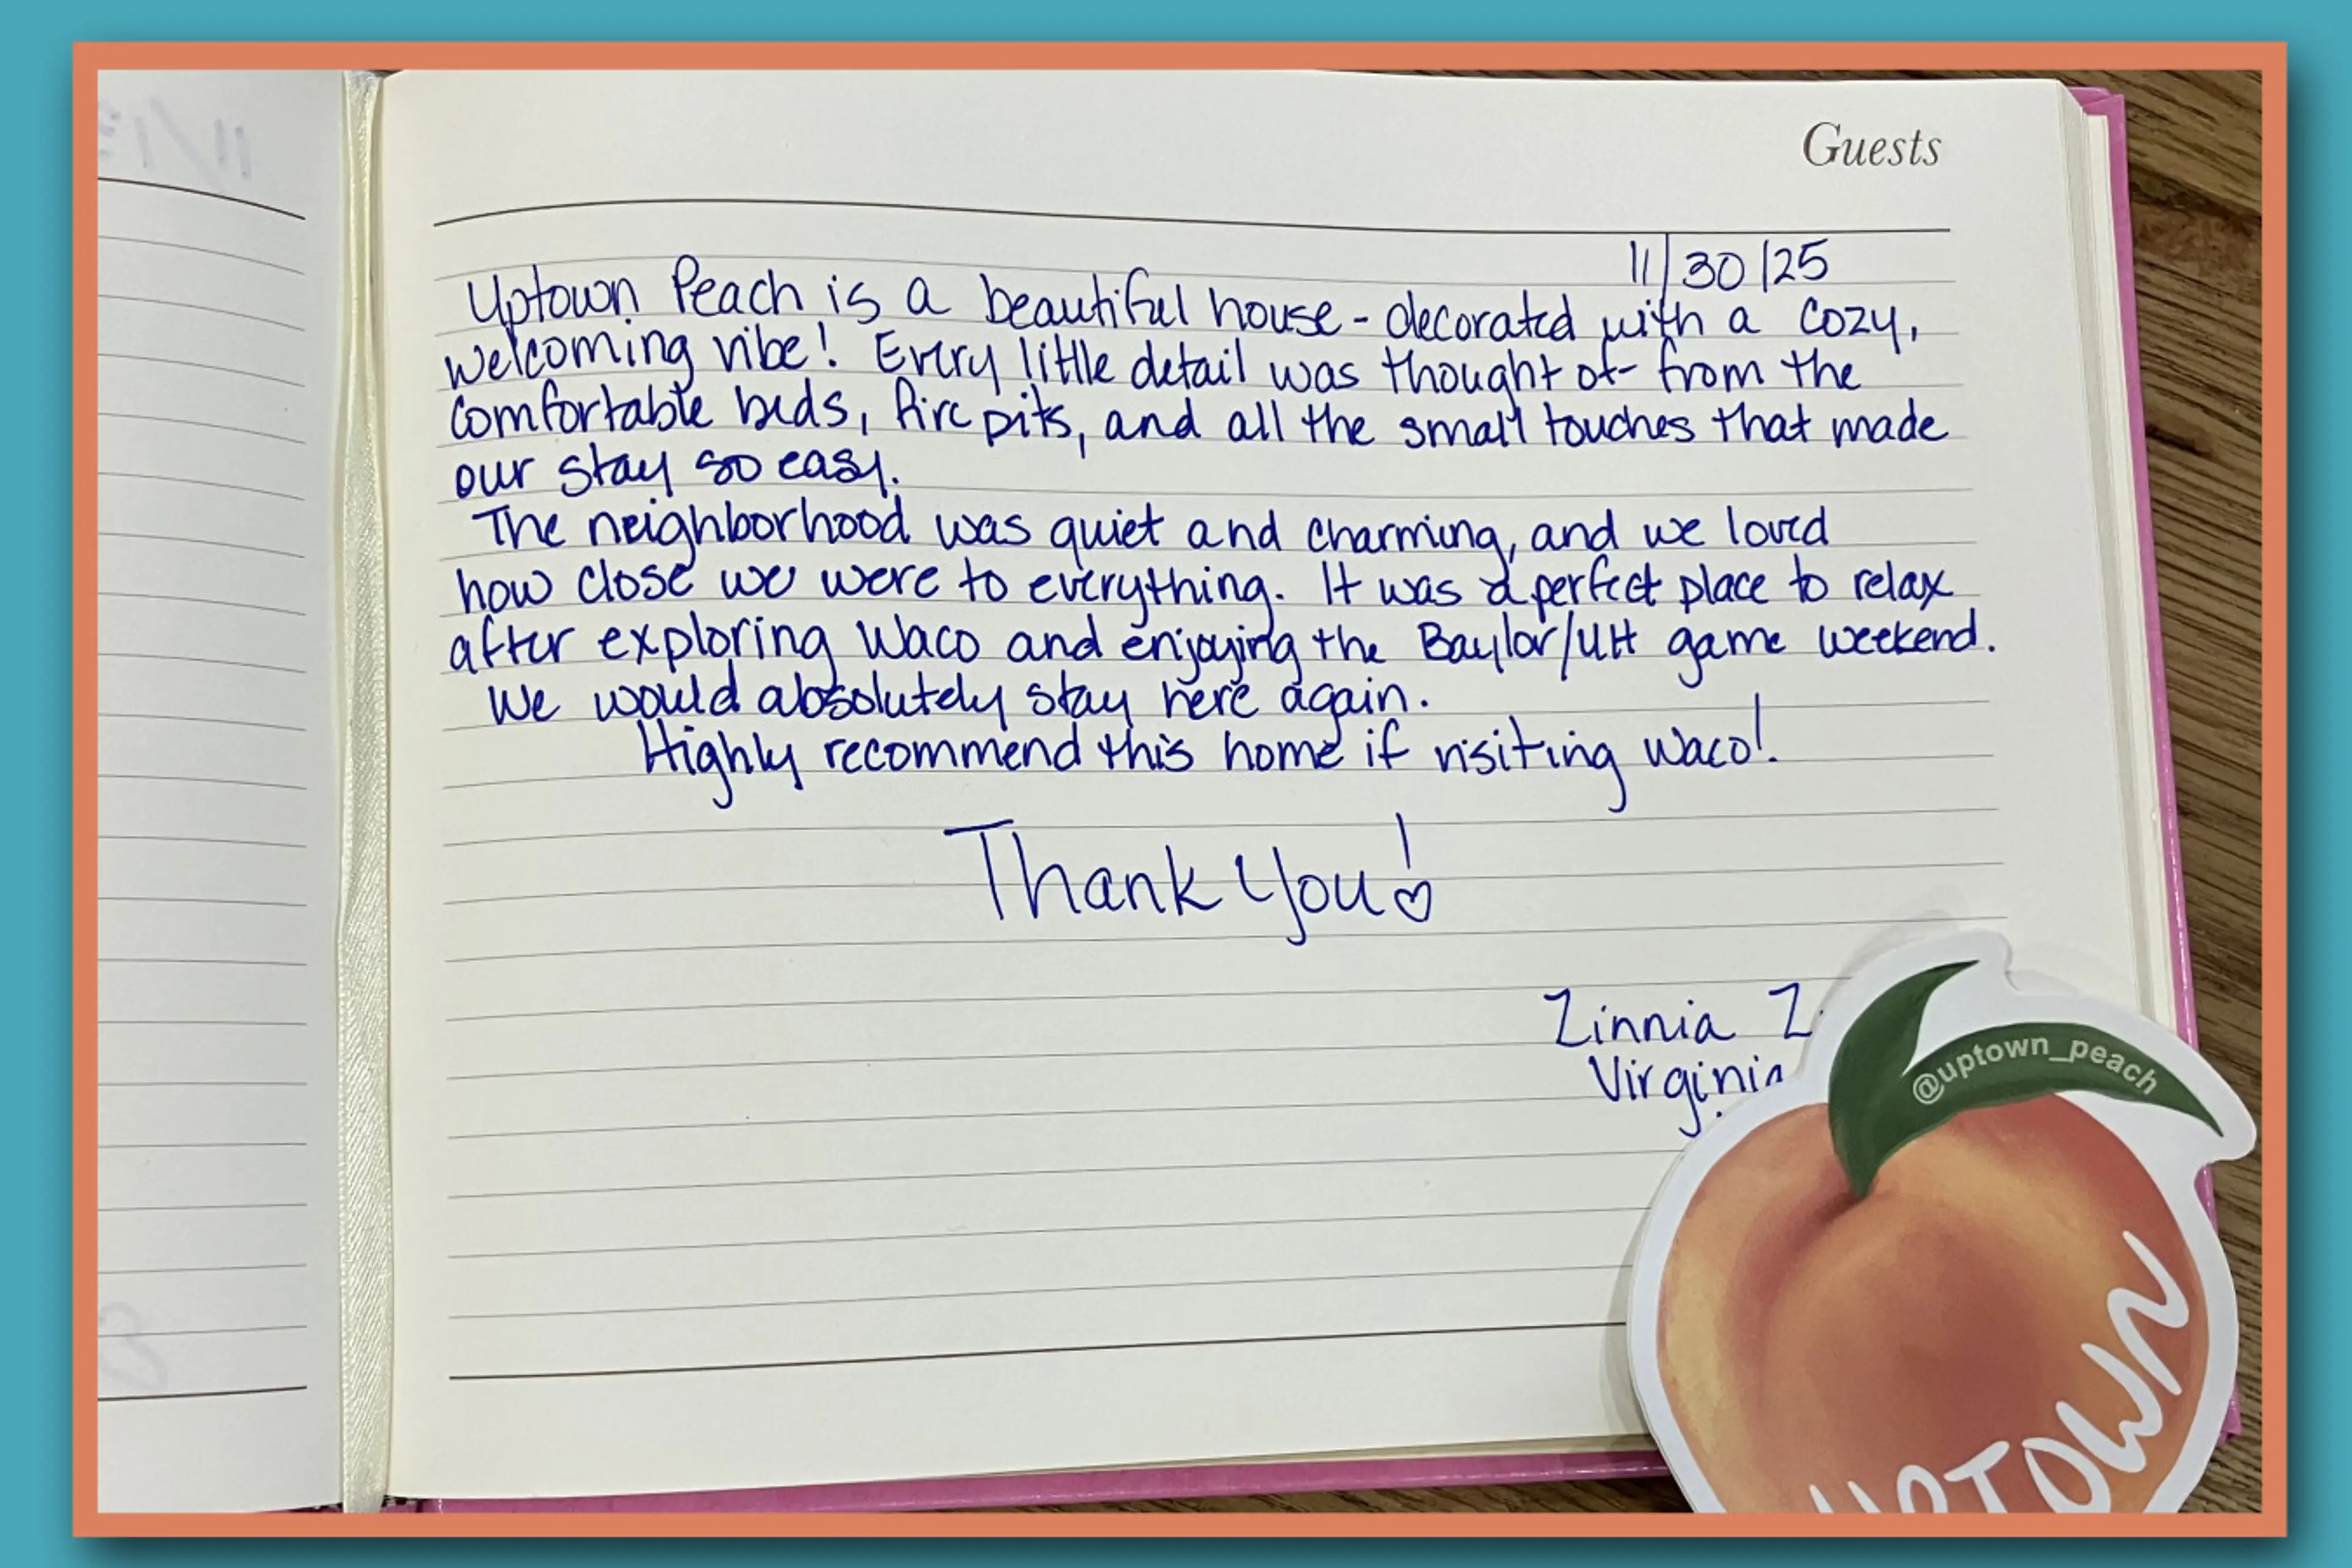 Guests
11/30/25
Uptown Peach is a beautiful house - decorated with a cozy,
welcoming vibe! Every little detail was thought of - from the
comfortable beds, fire pits, and all the small touches that made
our stay so easy.
The neighborhood was quiet and charming, and we loved
how close we were to everything. It was a perfect place to relax
after exploring Waco and enjoying the Baylor/UH game weekend.
We would absolutely stay here again.
Highly recommend this home if visiting Waco!
Thank You!
Zinnia Z.
Virginia
@uptown_peach
UPTOWN